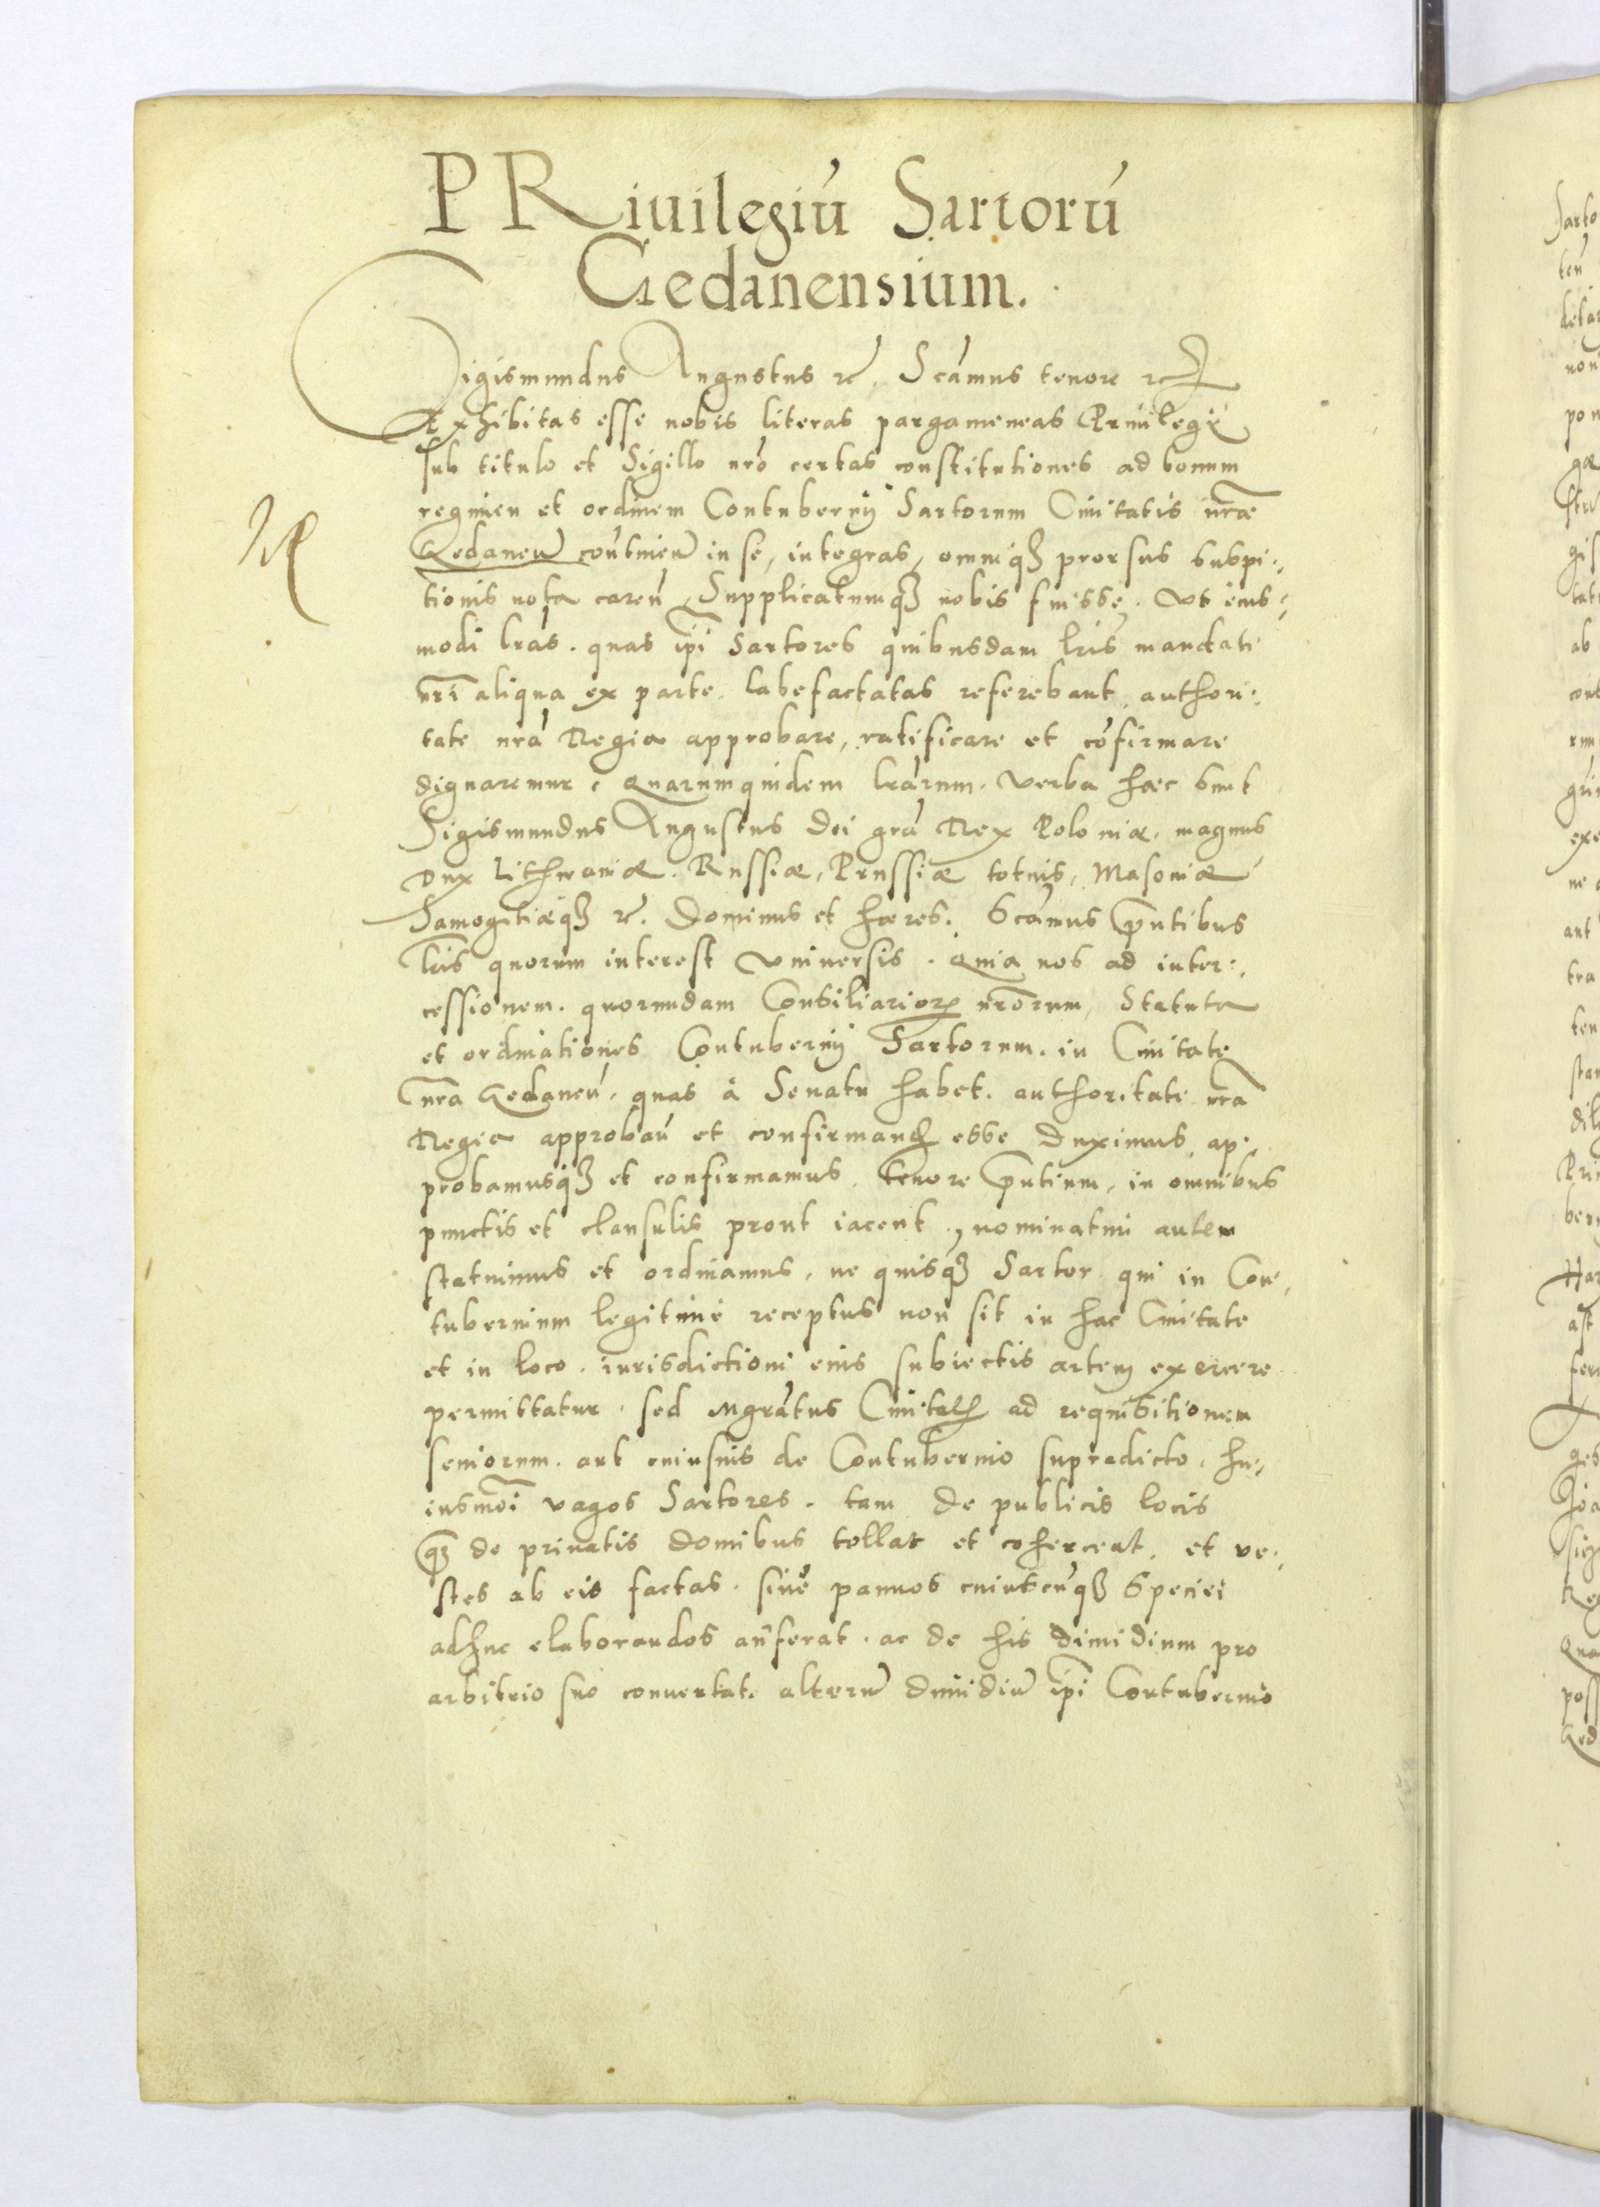 PRiuilegiũ Sartorũ
Gedanensium.
Sigismundus Augustus ꝛc̃. Scamus tenore ꝛc̃
Exhibitas esse nobis literas pargameneas Priuilegij
sub titulo et Sigillo nrõ certas constitutiones ad bonum
regimen et ordinem Contubernij Sartorum Ciuitatis nrãe
Gedaneñ continen̄ in se, integras, omniq̃ȝ prorsus suspi-
tionis nota careñ, Supplicatumq̃ȝ nobis fuisse. Vt eius-
modi lrãs. quas ip̃i Sartores quibusdam lrĩs mandati
nrĩ aliqua ex parte labefactatas referebant, authori-
tate nrã Regia approbare, ratificare et cõfirmare
dignaremur. Quarumquidem lrãrum. verba haec sunt
Sigismundus Augustus Dei grã Rex Poloniæ. magnus
Dux Lithuaniæ. Russiæ, Prussiæ totius, Masouiæ
Samogitiæq̃ȝ ꝛc̃. Dominus et hæres. Scamus p̃ntibus
lrĩs quorum interest vniuersis. Quia nos ad inter-
cessionem. quorundam Consiliarioꝝ nrõrum, Statuta
et ordinationes Contubernij Sartorum. in Ciuitate
nrã Gedaneñ. quas à Senatu habet. authoritate nrã
Regia approbañ et confirmand esse Duximus, ap-
probamusq̃ȝ et confirmamus. tenore p̃ntium, in omnibus
punctis et clausulis prout iacent., nominatim autem
statuimus et ordinamus, ne quisq̃ȝ Sartor qui in Con-
tubernium legitimè receptus non sit in hac Ciuitate
et in loco. iurisdictioni eius subiectis artem exercere
permittatur. sed Mgrãtus Ciuitatꝭ ad requisitionem
seniorum. aut cuiusuis de Contubernio supradicto, hu-
iusmõi vagos Sartores. tam de publicis locis
q̃ȝ de priuatis domibus tollat et coherceat. et ve-
stes ab eis factas. siuè pannos cuiuscũq̃ȝ Speciei
adhuc elaborandos auferat. ac de his dimidium pro
arbitrio suo conuertat. alterũ dimidiũ ip̃i Contubernio